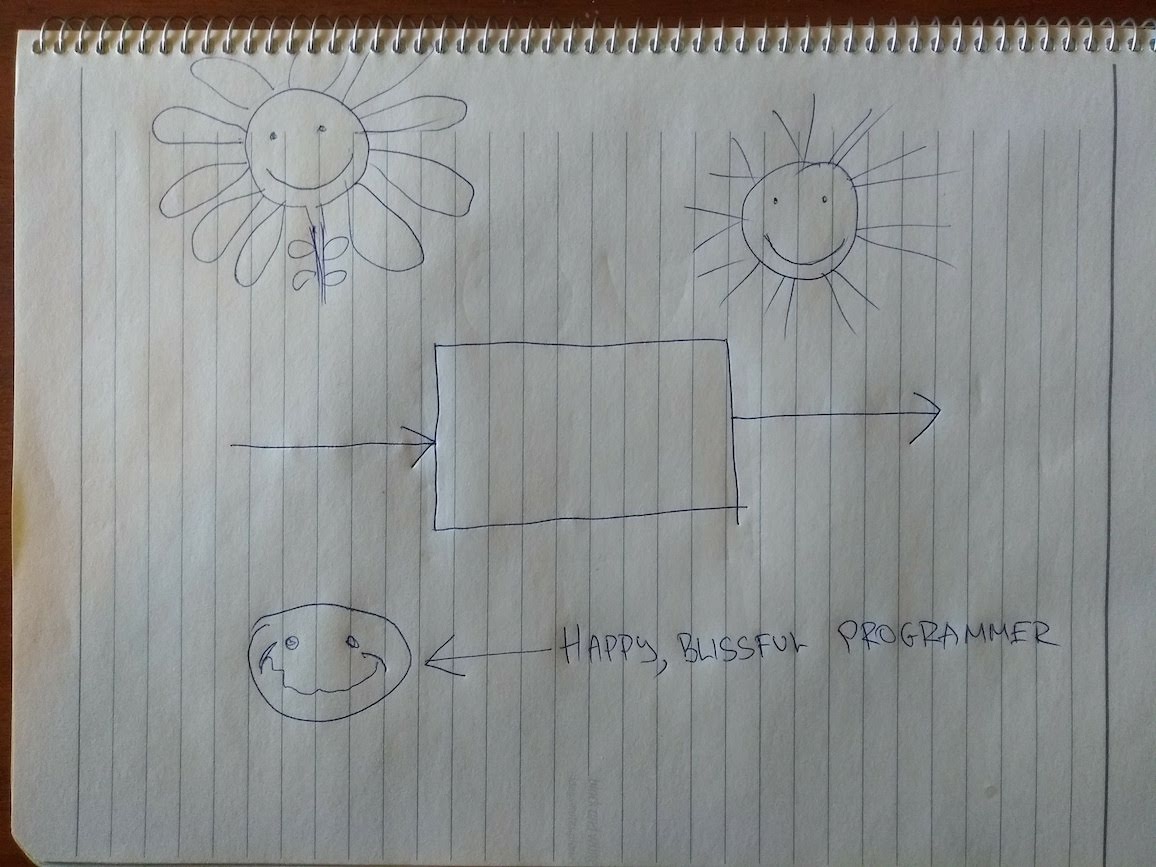 HAPPY, BLISSFUL PROGRAMMER